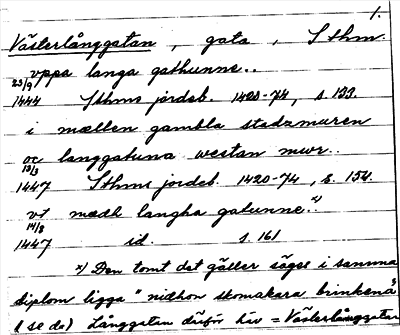 1.
Västerlånggatan, gata, Sthm.
vppa langa gathunne..
23/9
1444 Sthms jordeb. 1420-74, s. 133.
i mællen gambla stadzmuren
oc langgatuna westan mwr..
13/3
1447 Sthms jordeb. 1420-74, s. 154.
vt medh langha gatunne.x)
14/8
1447 id. s. 161
x) Den tomt det gäller säges i samma
diplom ligga "nidhon skomakara brinkenä"
(se do) Långgatan därför här = Västerlånggatan